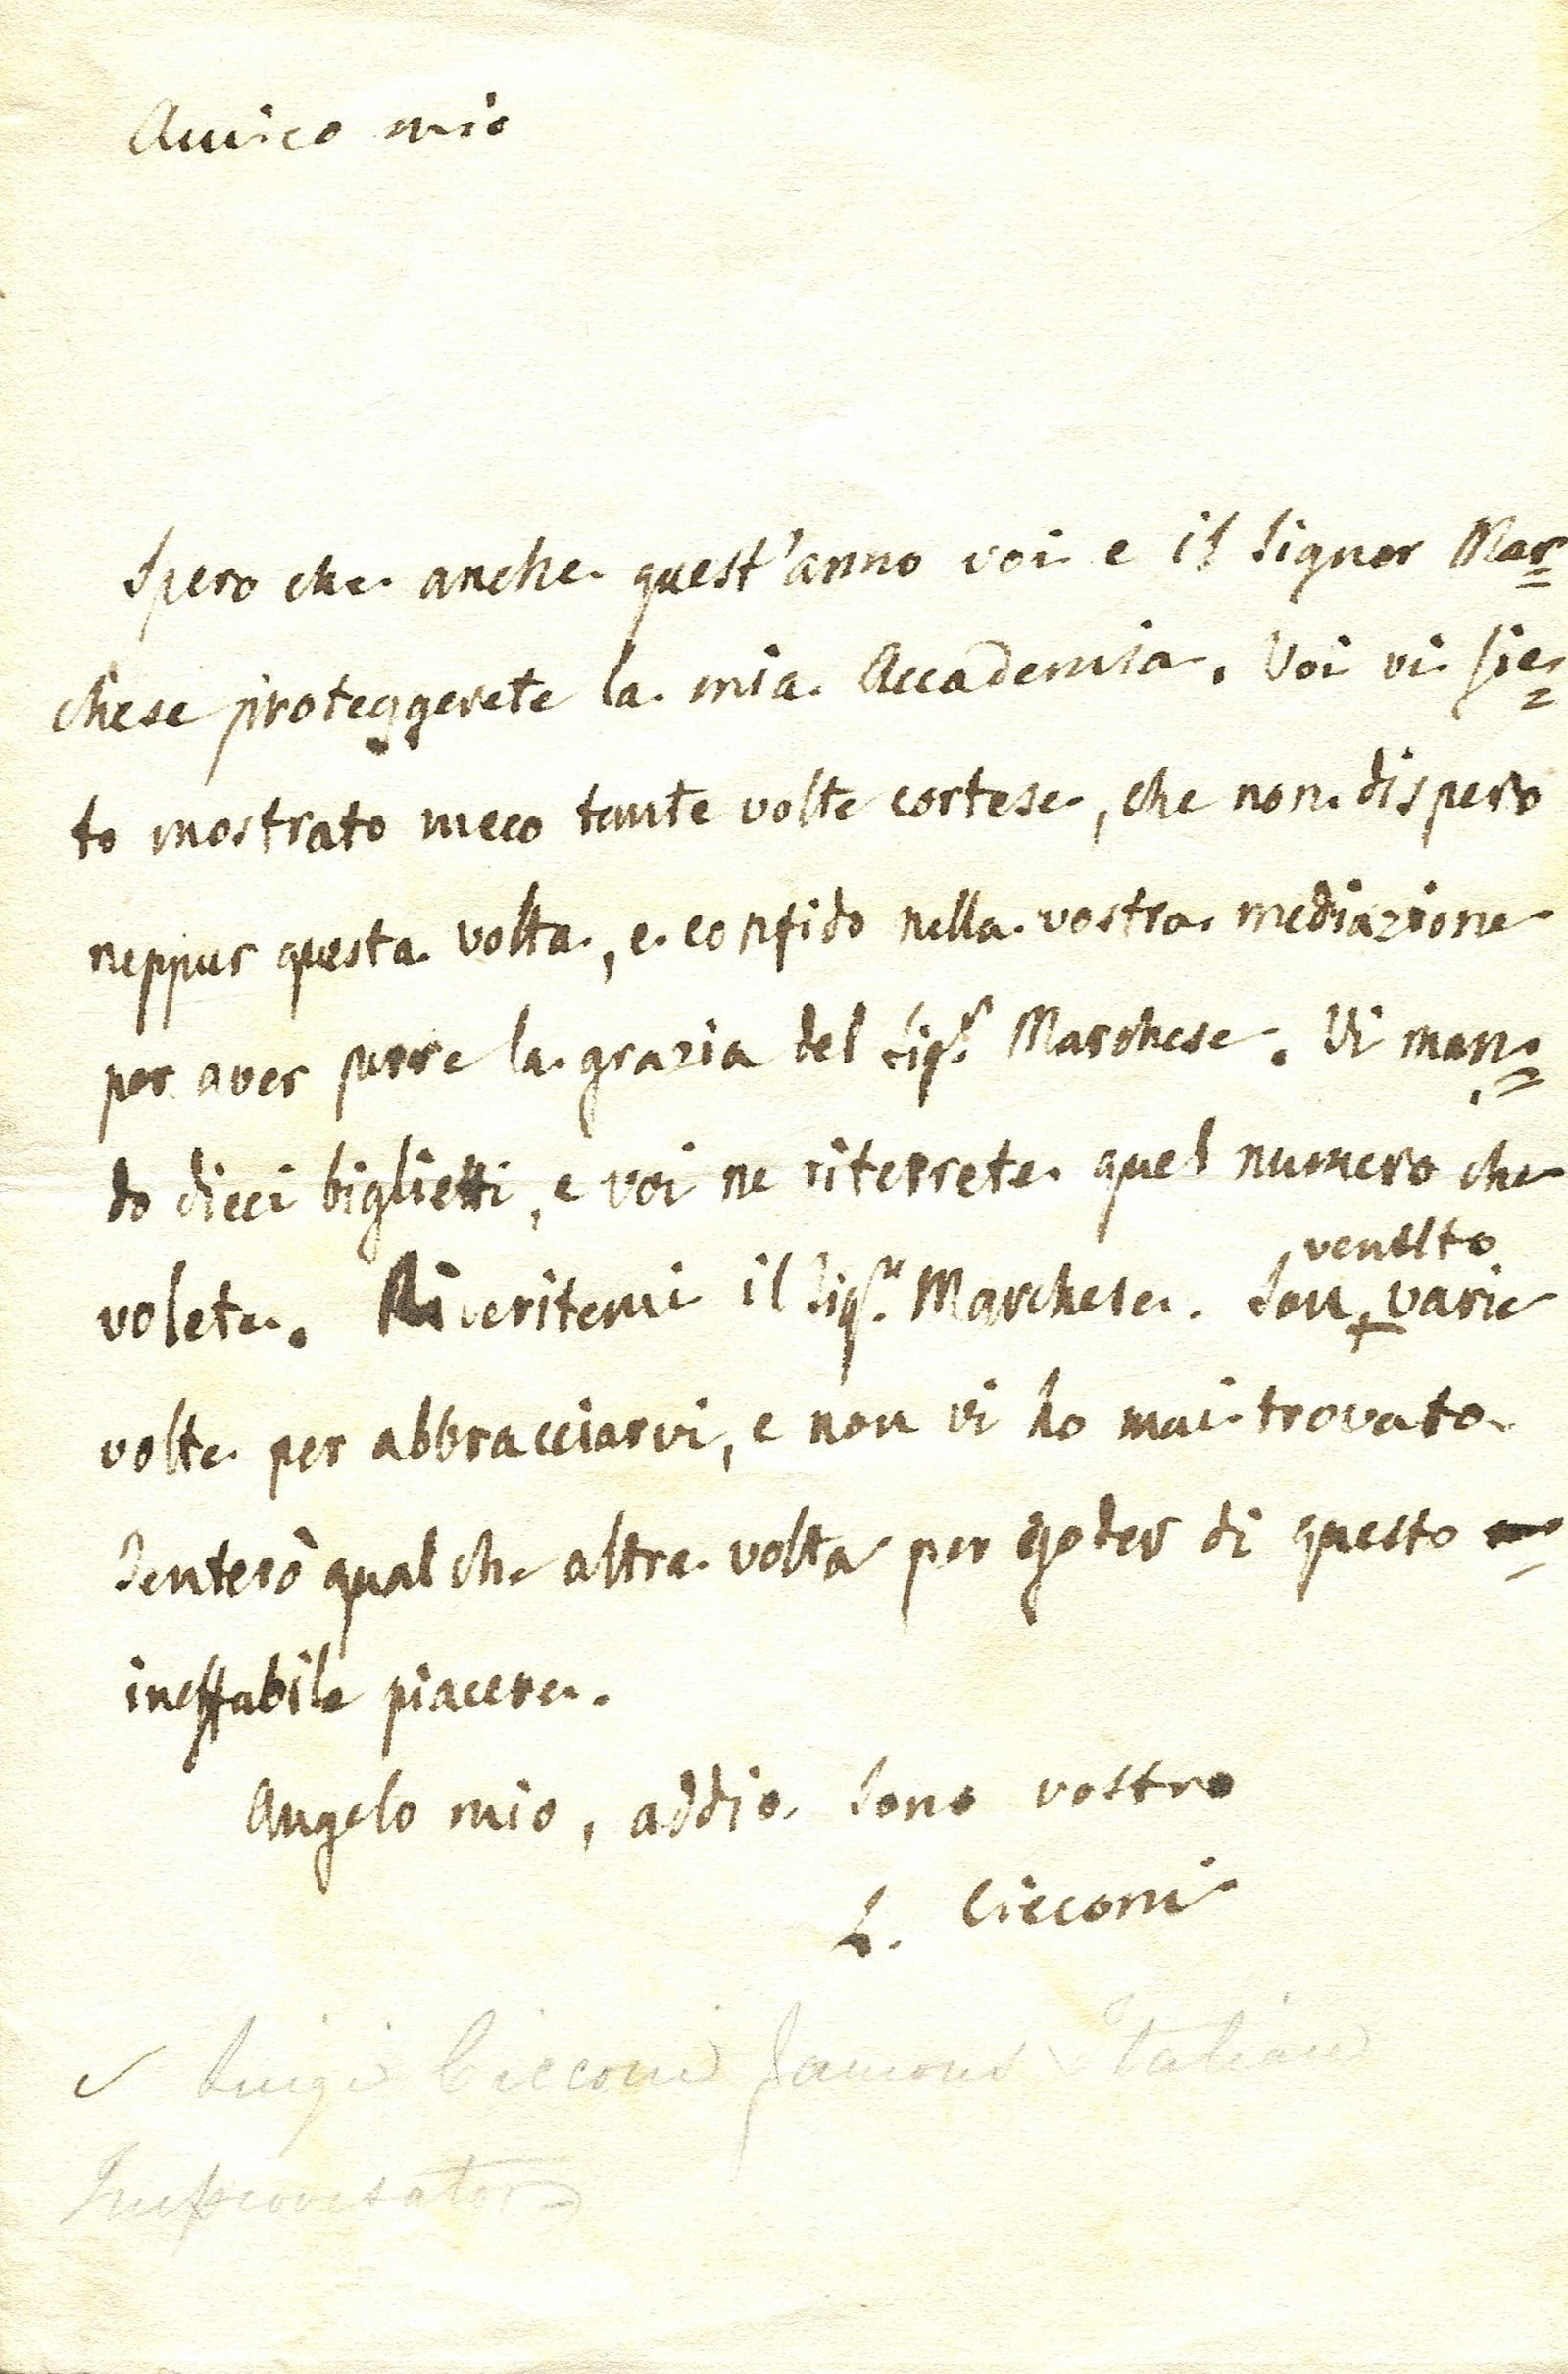 Amico mio
Spero che anche quest'anno voi e il Signor Mar=
chese proteggerete la mia Accademia. Voi vi sie=
te mostrato meco tante volte cortese, che non dispero
neppur questa volta, e confido nella vostra mediazione
per aver pure la grazia del Sigr. Marchese. Vi man=
do dieci biglietti, e voi ne riterrete quel numero che
volete. Riveritemi il Sigr. Marchese. Son varie
venuto
volte per abbracciarvi, e non vi ho mai trovato.
Tenterò qualche altra volta per goder di questo
ineffabile piacere.
Angelo mio, addio. Sono vostro
L. Cicconi
✓ Luigi Cicconi famous Italian
Improvisatore